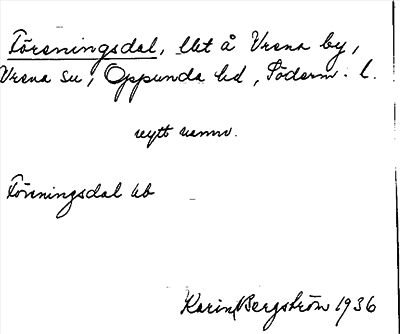 Föreningsdal, lht å Vrena by,
Vrena sn, Oppunda hd, Söderm. l.
nytt namn.
Föreningsdal hb
Karin Bergström 1936